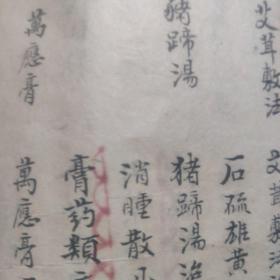 艾茸敷法
猪蹄湯
萬應膏
艾茸敷
石硫雄黄
猪蹄湯治
消腫散
膏药類
萬應膏